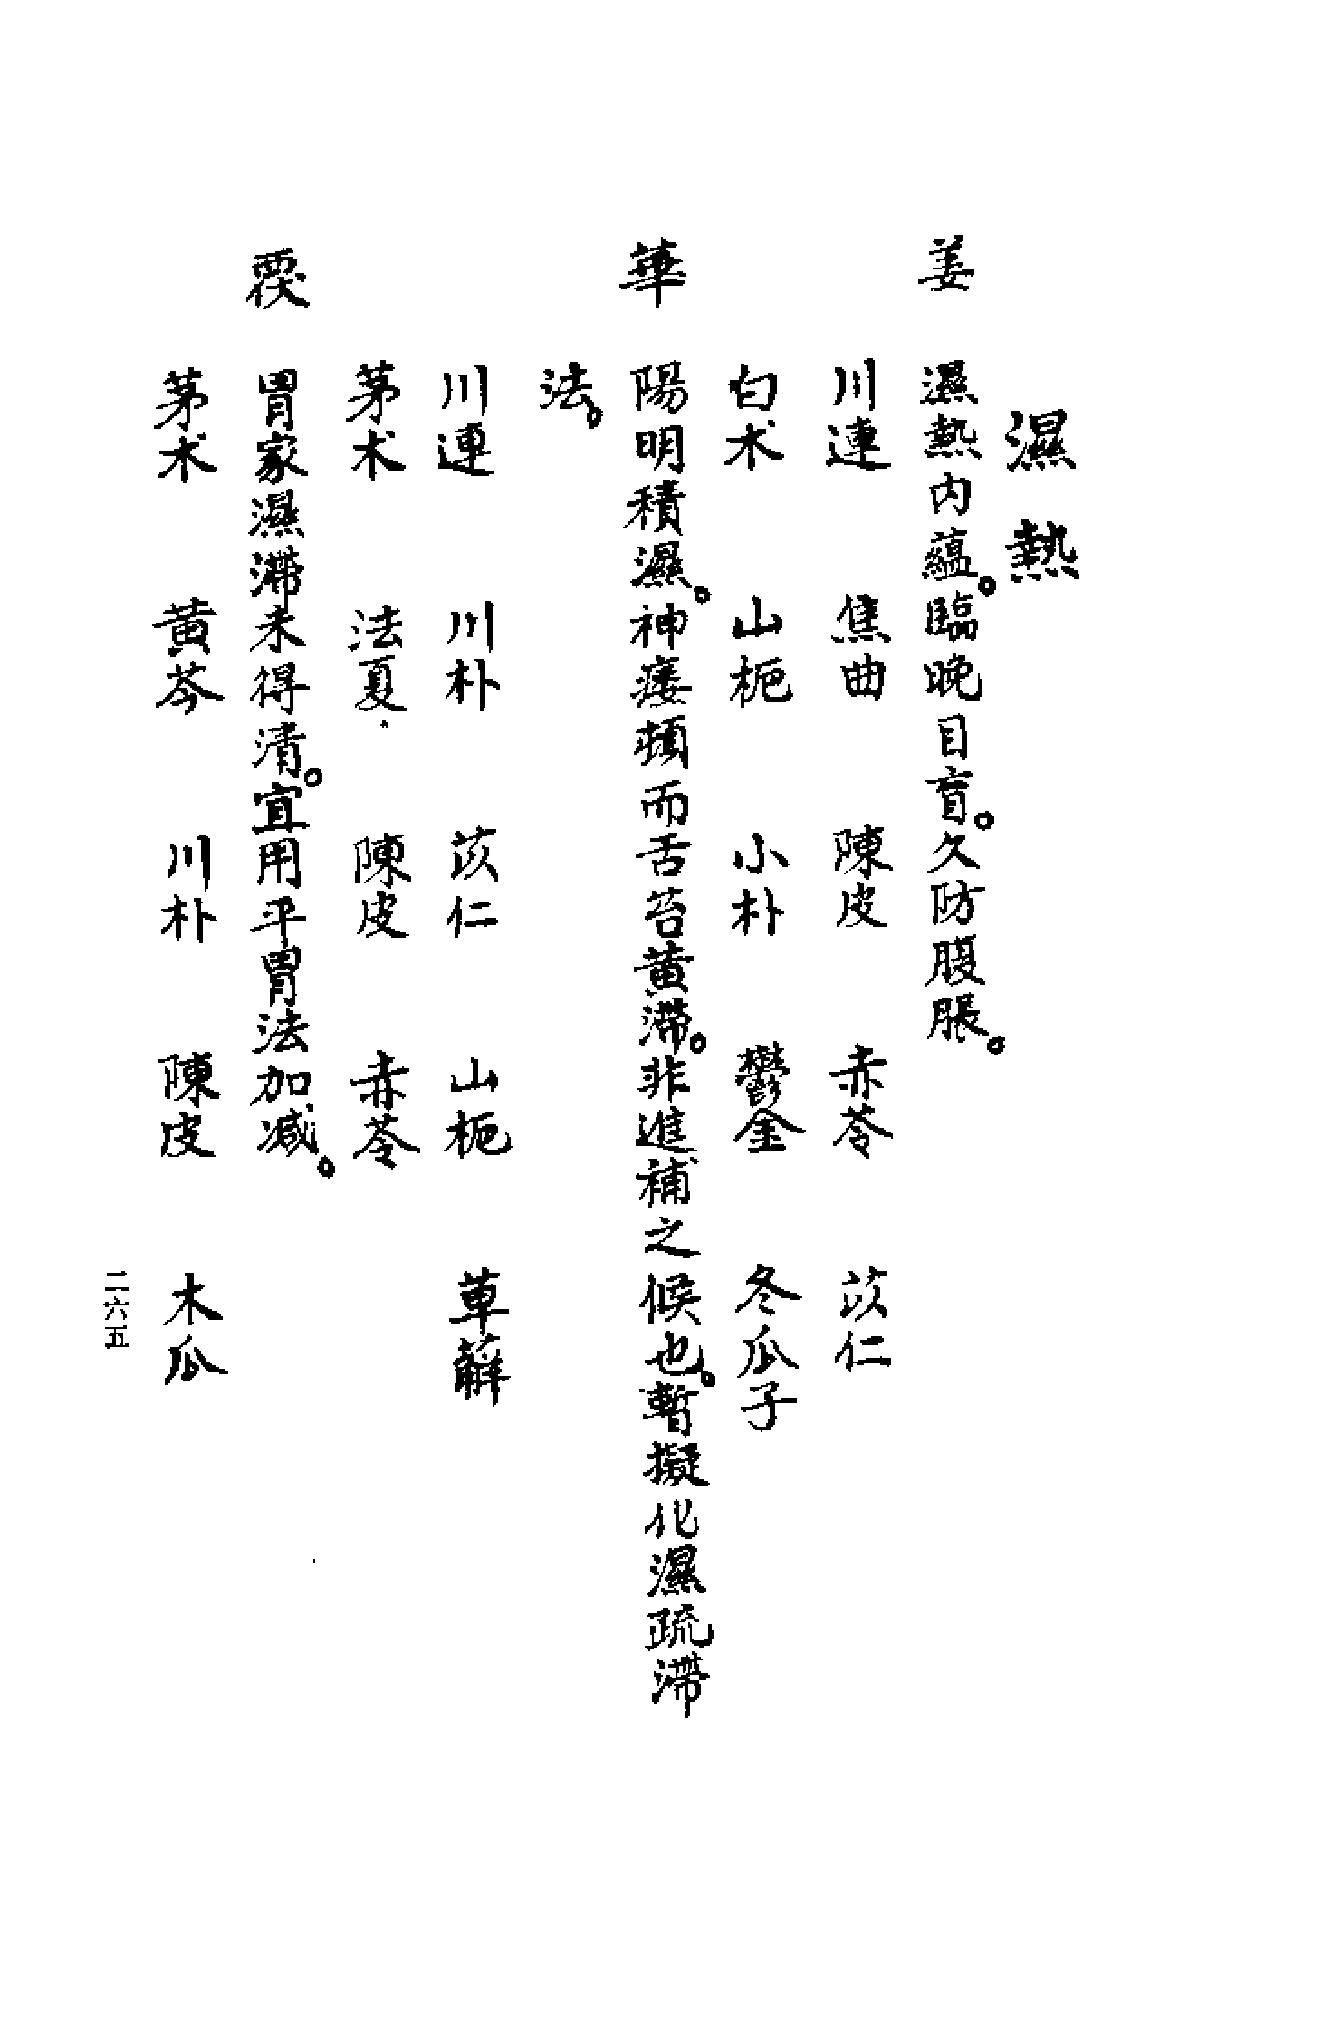 濕熱
姜 濕熱内蘊。臨晚目盲。久防腹脹。
川連 焦曲 陳皮 赤苓 苡仁
白术 山梔 小朴 鬱金 冬瓜子
華 陽明積濕。神痿頓而舌苔黄滯。非進補之候也。暫擬化濕疏滯
法。
川連 川朴 苡仁 山梔 萆薢
茅术 法夏 陳皮 赤苓
胃家濕滯未得清。宜用平胃法加减。
茅术 黄芩 川朴 陳皮 木瓜
二六五